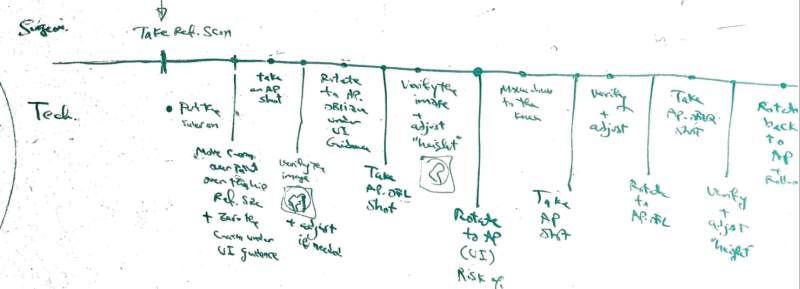 Surgeon.
Take Ref. Scan
Tech.
• Put the
Move C-arm
over patient
over the hip
Ref. Site
+ Zero the
C-arm under
UI guidance
take
an AP
shot
Verify the
image
+ adjust
if needed
Rotate
to AP.
Oblique
under
UI
Guidance
Take
AP. OBL
Shot
Verify the
image
+
adjust
"height"
Rotate
to AP
(UI)
Risk
Move
to the
knee
Take
AP
Shot
Verify
+ adjust
Rotate
to
AP. OBL
Take
AP. OBLQ
Shot
Verify
+ adjust
"height"
Rotate
back
to
AP
+